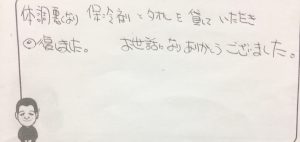 体調悪くなり 保冷剤、タオルを貸していただき
回復しました。 お世話になりありがとうございました。